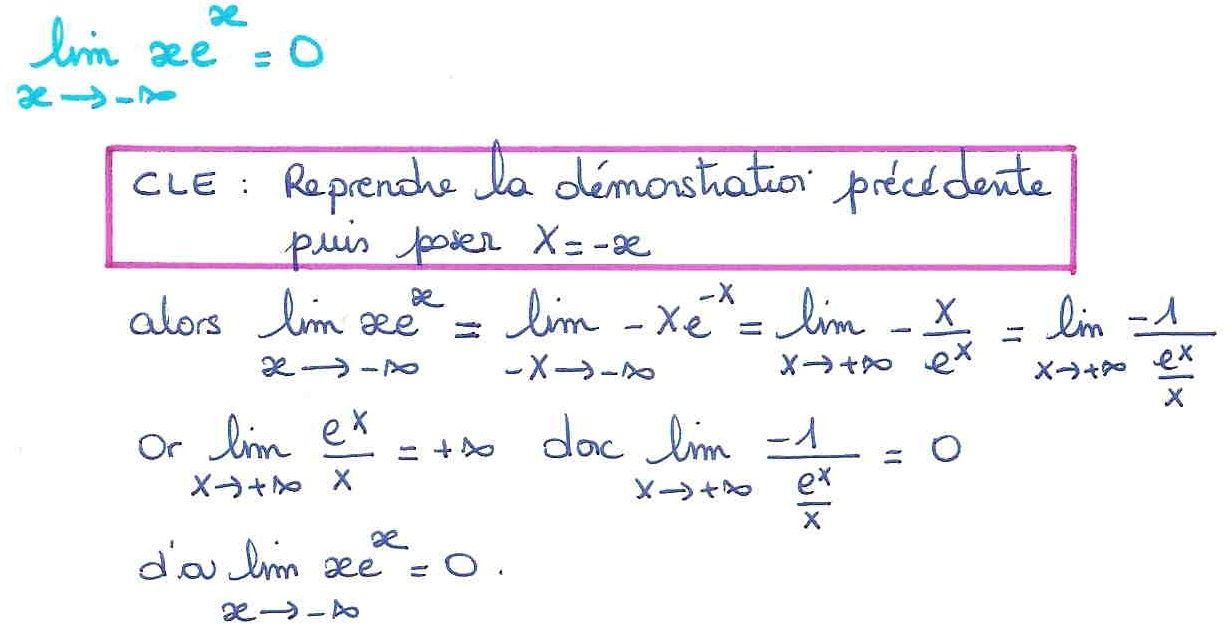 lim xe^x = 0
x → -∞
CLE : Reprendre la démonstration précédente
puis poser X = -x
alors lim xe^x = lim - Xe^-X = lim - X/e^X = lim -1/(e^X/X)
x → -∞ -X → -∞ X → +∞ X → +∞
Or lim e^X/X = +∞ donc lim -1/(e^X/X) = 0
X → +∞ X → +∞
d'où lim xe^x = 0.
x → -∞